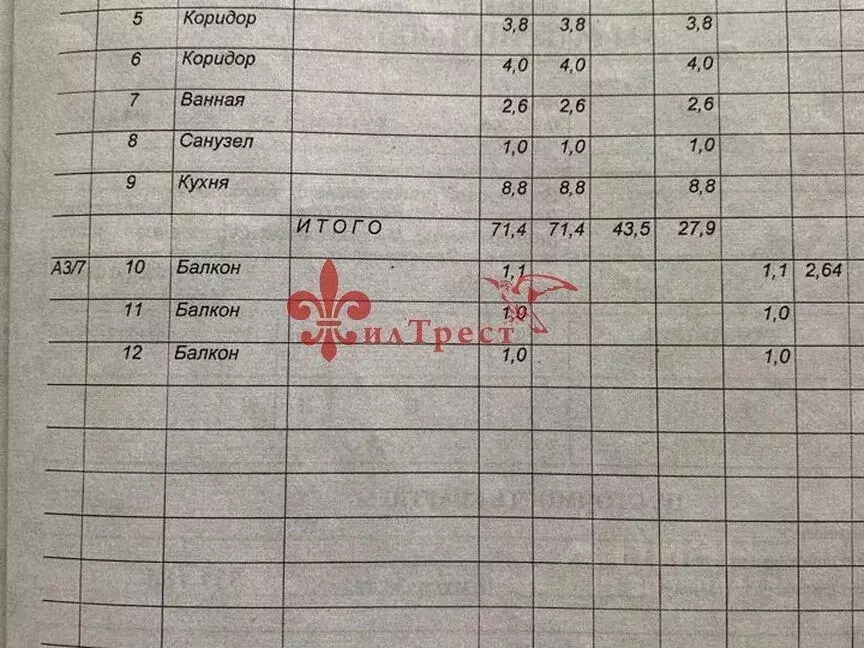 5 Коридор 3,8 3,8 3,8
6 Коридор 4,0 4,0 4,0
7 Ванная 2,6 2,6 2,6
8 Санузел 1,0 1,0 1,0
9 Кухня 8,8 8,8 8,8
ИТОГО 71,4 71,4 43,5 27,9
А3/7 10 Балкон 1,1 1,1 2,64
11 Балкон 1,0 1,0
ЖилТрест
12 Балкон 1,0 1,0